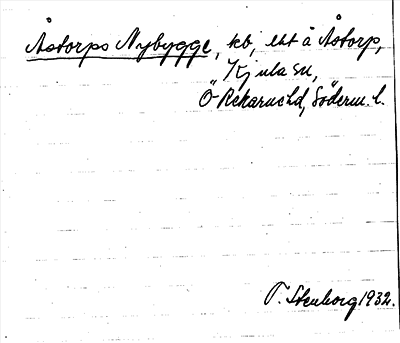 Åstorps Nybygge, kb, lht å Åstorp,
Kjula sn,
Ö Rekarne hd, Söderm. l.
T. Stenborg 1932.